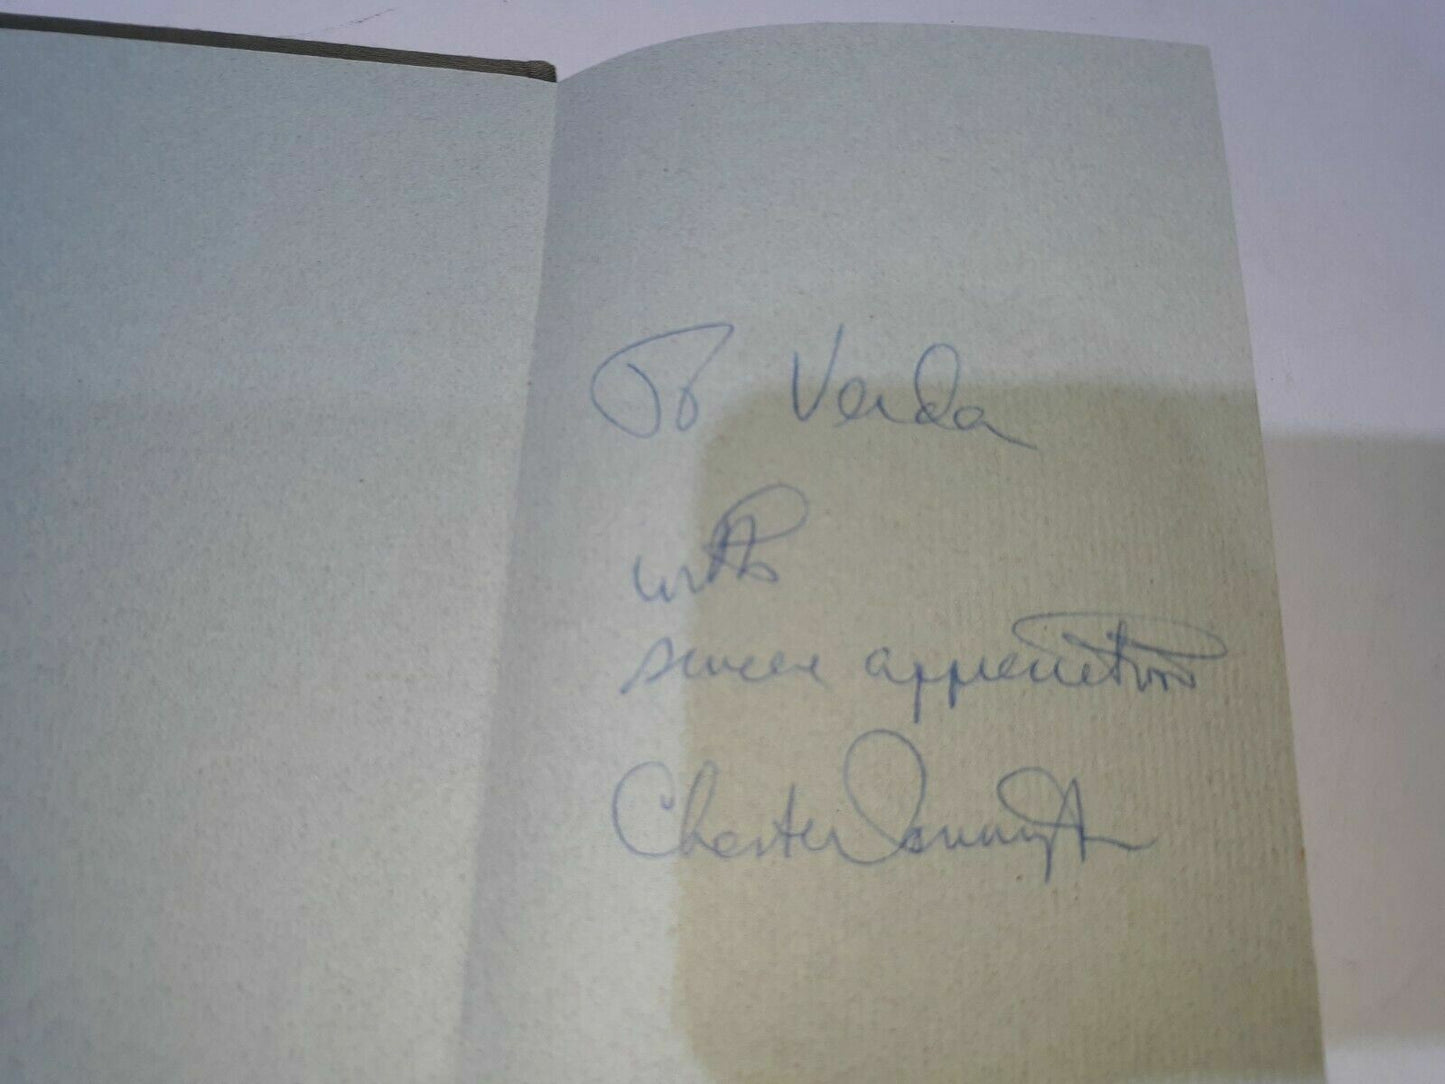 To Verda
with
sincere appreciation
Chester